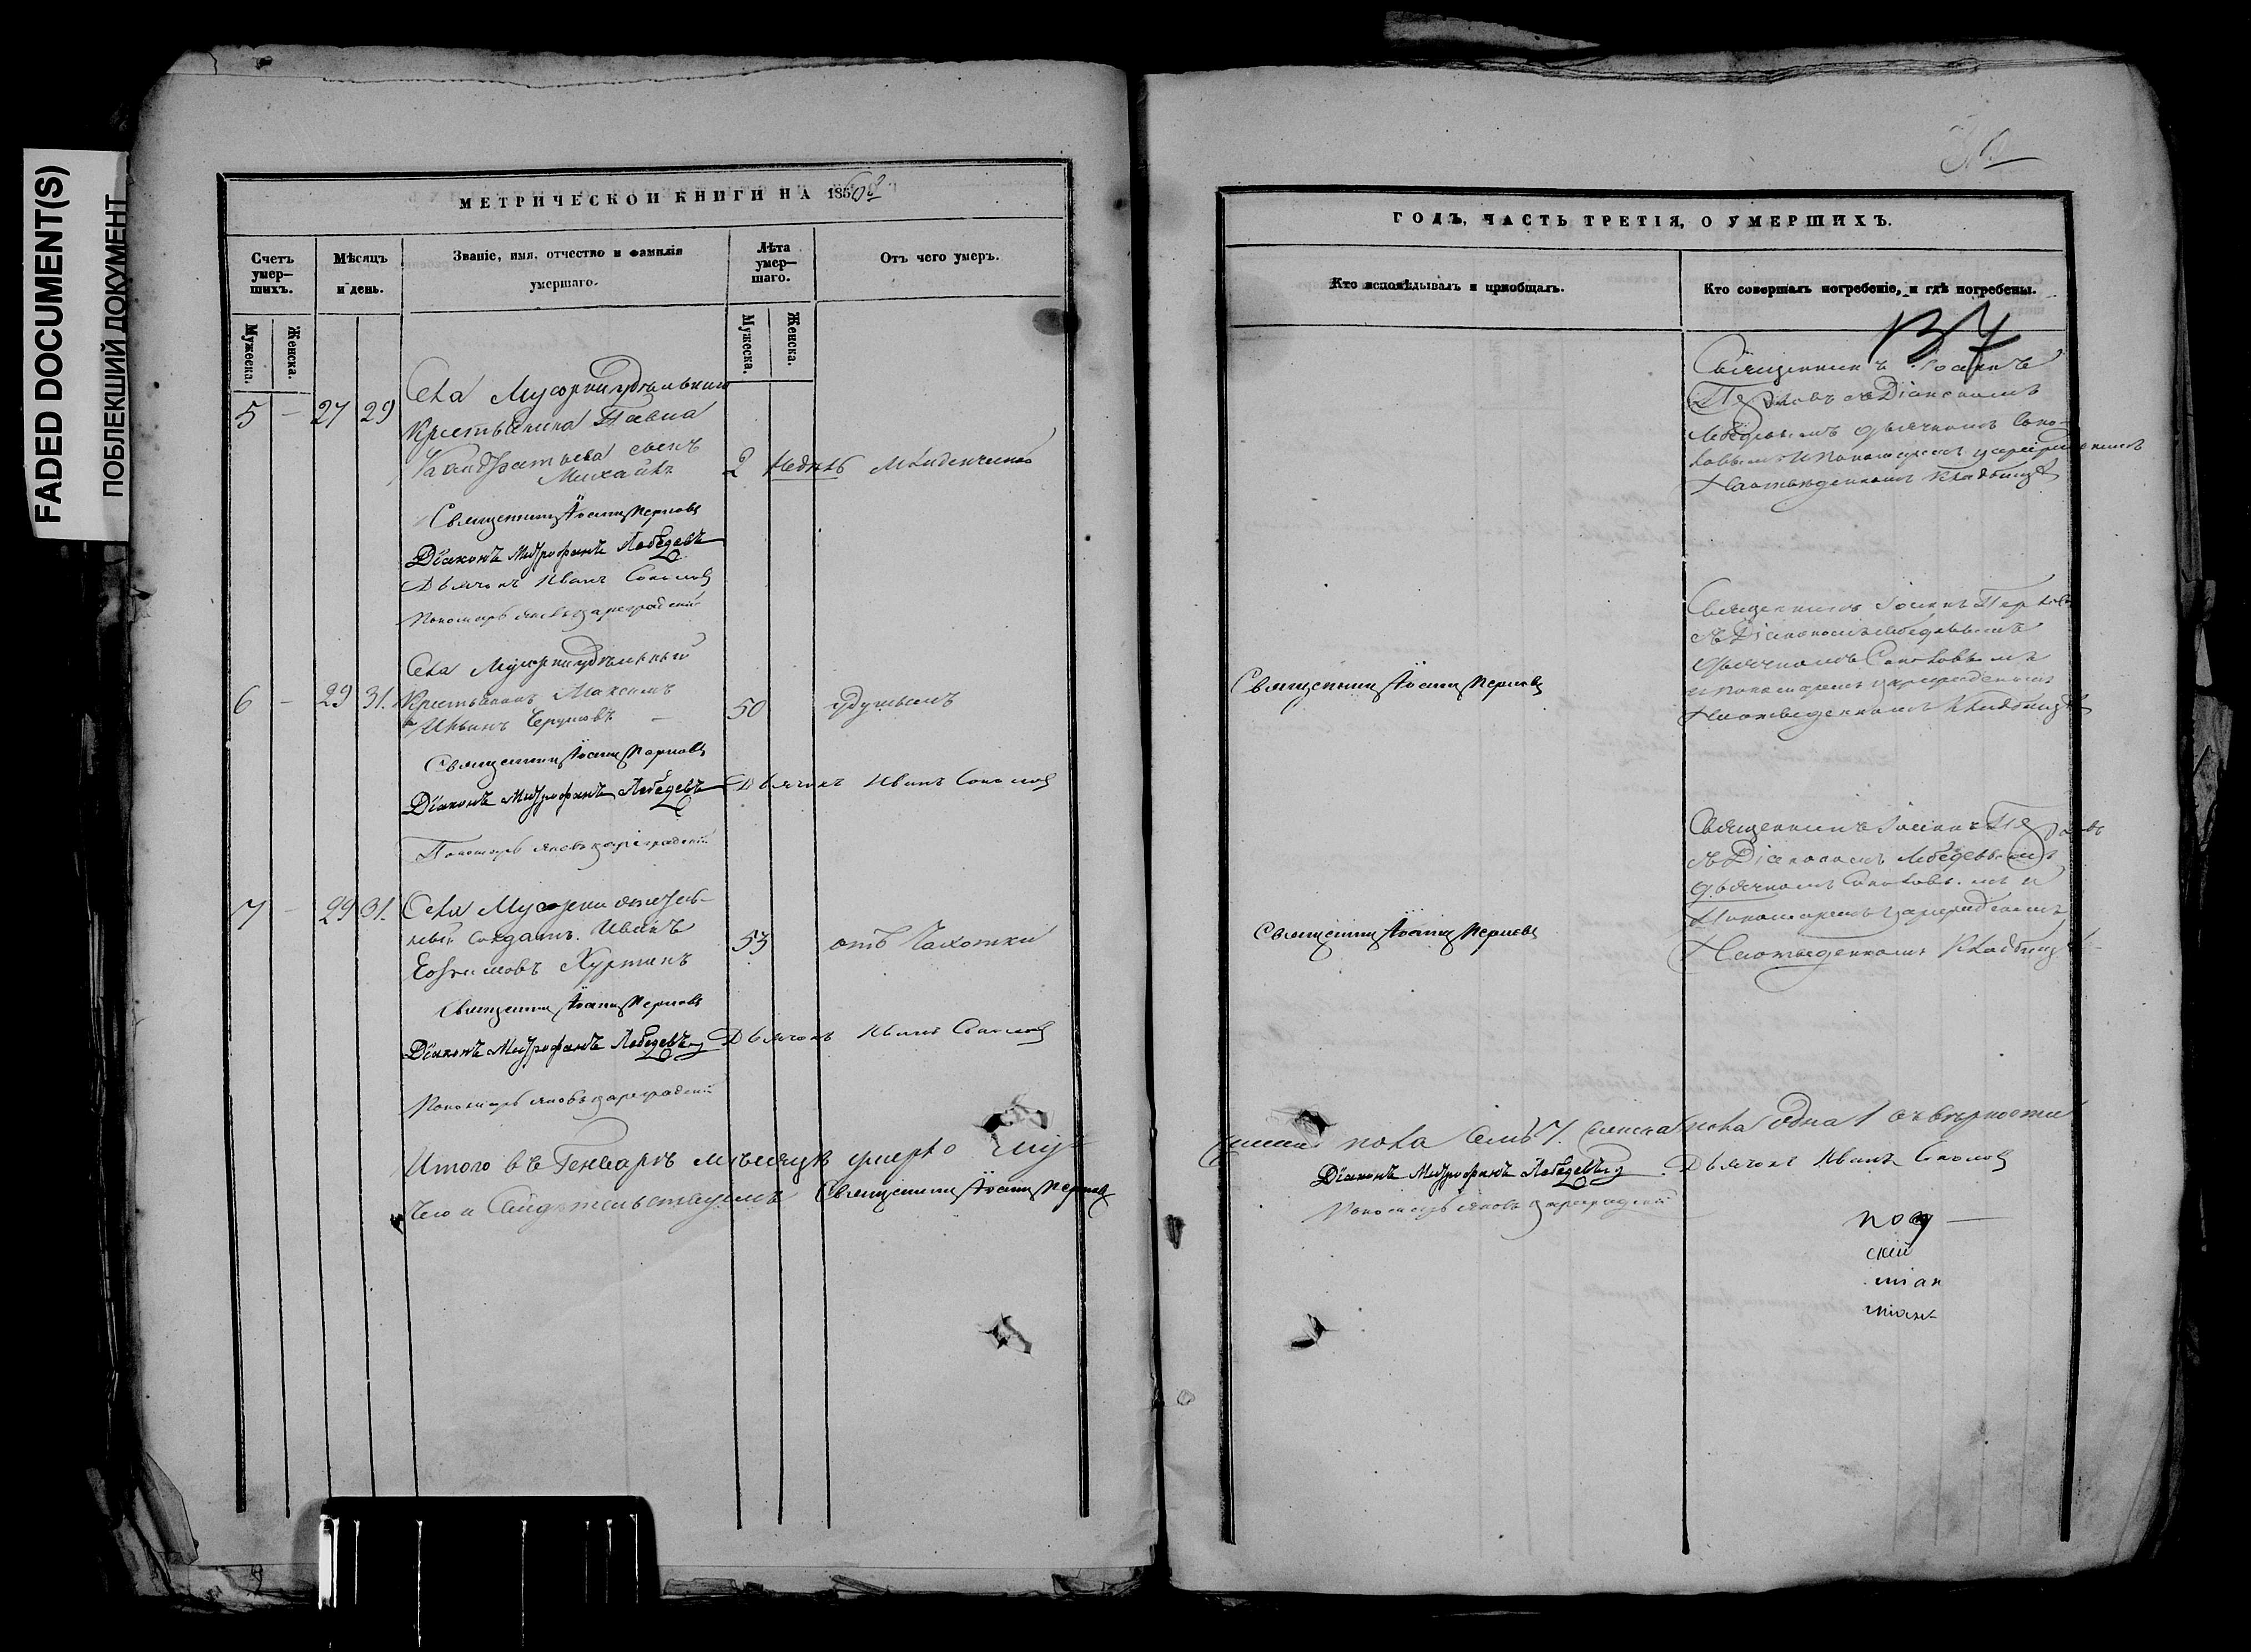 FADED DOCUMENT(S)
ПОБЛЕКШИЙ ДОКУМЕНТ
МЕТРИЧЕСКОЙ КНИГИ НА 1860
Счетъ умер—шихъ.
Мѣсяцъ и день.
Званіе, имя, отчество и фамилія умершаго.
Лѣта умер—шаго.
Отъ чего умеръ.
Мужеска.
Женска.
Мужеска.
Женска.
5 — 27 29
Села
крестьянина Павла
Кандратьева сынъ
Михаилъ
2 недѣль младенческой
Священникъ Іоаннъ Перловъ
Діаконъ Митрофанъ Лебедевъ
Дьячокъ Иванъ Соколовъ
Пономарь Яковъ Цареградскій
6 — 29 31.
Села
крестьянинъ Максимъ
50 удушьемъ
Священникъ Іоаннъ Перловъ
Діаконъ Митрофанъ Лебедевъ Дьячокъ Иванъ Соколовъ
Пономарь Яковъ Цареградскій
7 — 29 31.
Села
солдатъ Иванъ
Ефимовъ
53 отъ чахотки
Священникъ Іоаннъ Перловъ
Діаконъ Митрофанъ Лебедевъ Дьячокъ Иванъ Соколовъ
Пономарь Яковъ Цареградскій
Итого въ Генварѣ мѣсяцѣ умерло муж
чего и свидѣтельствуемъ Священникъ Іоаннъ Перловъ
ГОДЪ, ЧАСТЬ ТРЕТІЯ, О УМЕРШИХЪ.
Кто исповѣдывалъ и пріобщалъ.
Кто совершалъ погребеніе, и гдѣ погребены.
Священникъ Іоаннъ
Перловъ съ Діакономъ
Лебедевымъ дьячкомъ Соко-
ловымъ и пономаремъ Цареградскимъ
на отведенномъ кладбищѣ
Священникъ Іоаннъ Перловъ
Священникъ Іоаннъ Перловъ
съ Діакономъ Лебедевымъ
дьячкомъ Соколовымъ
и пономаремъ Цареградскимъ
на отведенномъ кладбищѣ
Священникъ Іоаннъ Перловъ
Священникъ Іоаннъ Перловъ
съ Діакономъ Лебедевымъ
дьячкомъ Соколовымъ и
пономаремъ Цареградскимъ
на отведенномъ кладбищѣ
пола семь 7. женска пола одна 1
Діаконъ Митрофанъ Лебедевъ Дьячокъ Иванъ Соколовъ
Пономарь Яковъ Цареградскій
скій